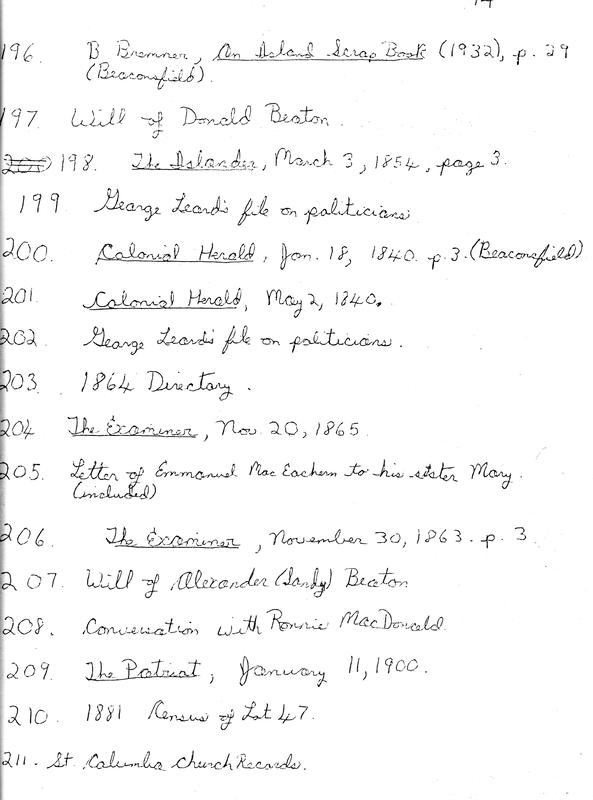 196. B Bremner, An Island Scrap Book (1932), p. 29
(Beaconsfield).
197. Will of Donald Beaton.
198. The Islander, March 3, 1854, page 3.
199 George Leard's file on politicians
200. Colonial Herald, Jan. 18, 1840. p. 3. (Beaconsfield)
201. Colonial Herald, May 2, 1840.
202 George Leard's file on politicians.
203. 1864 Directory.
204 The Examiner, Nov. 20, 1865.
205. Letter of Emmanuel MacEachern to his sister Mary.
(included)
206. The Examiner, November 30, 1863. p. 3.
207. Will of Alexander (Sandy) Beaton
208. Conversation with Ronnie MacDonald.
209. The Patriot, January 11, 1900.
210. 1881 Census of Lot 47.
211. St. Columba Church Records.